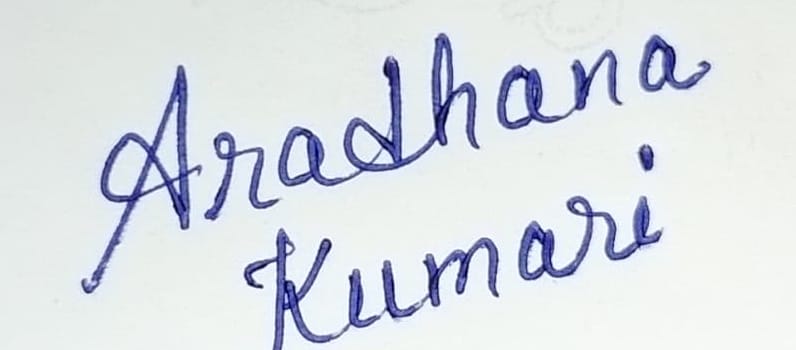 Aradhana
Kumari